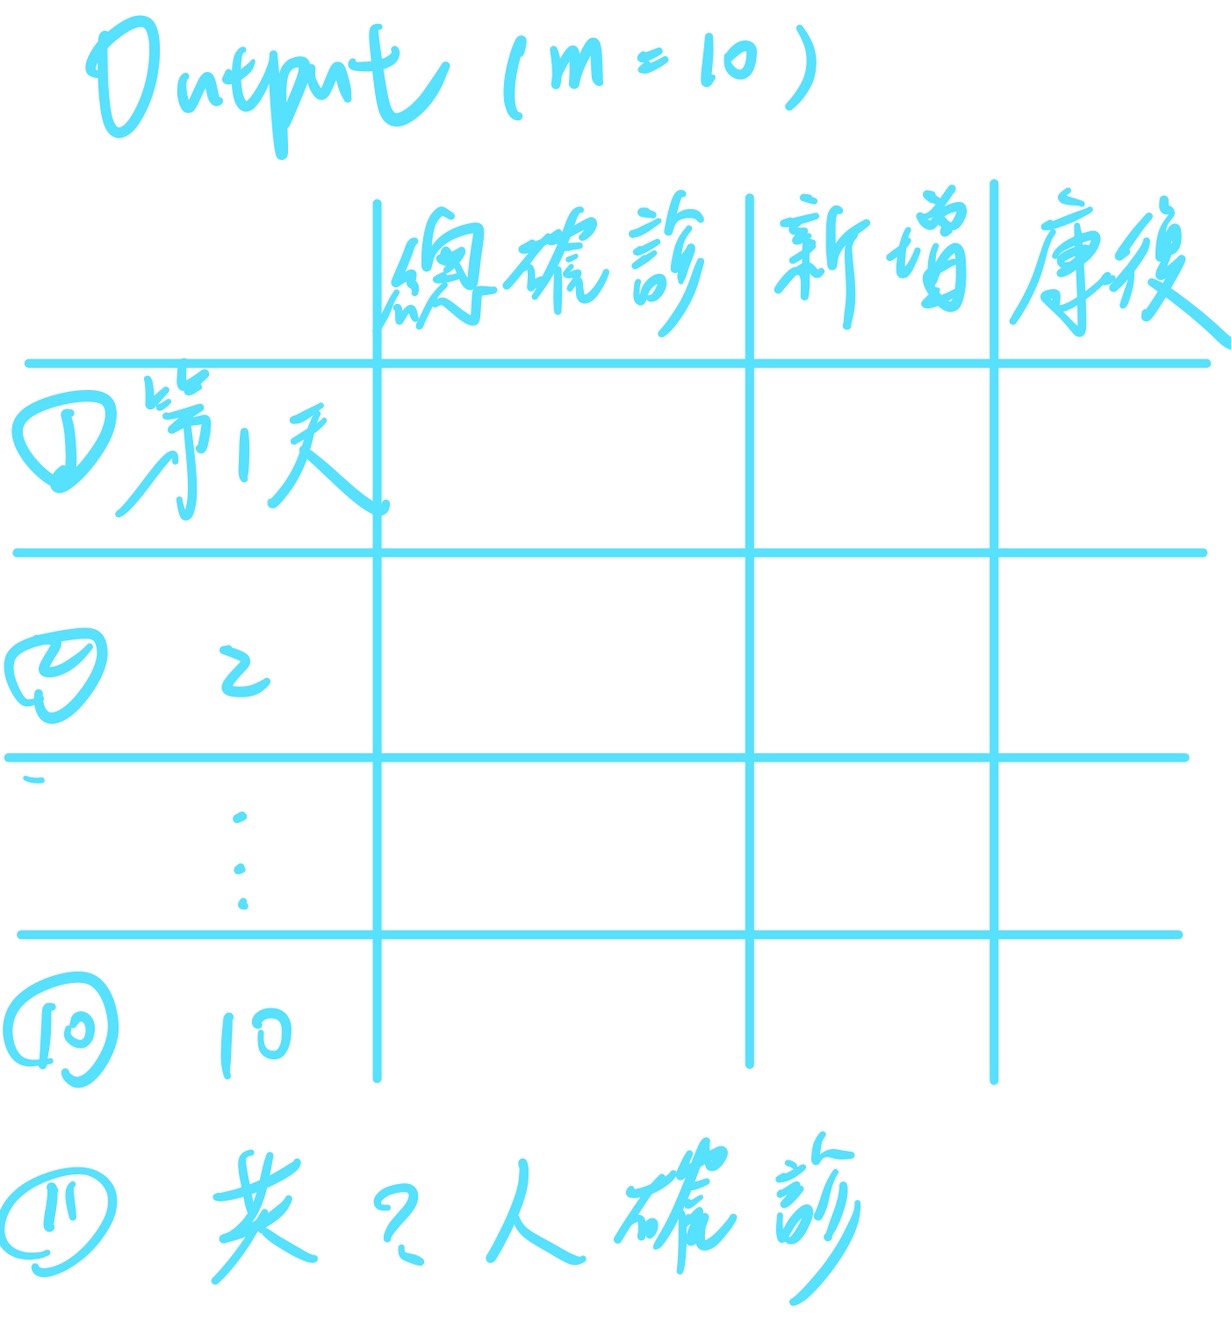 Output (m=10)
總確診 新增 康復
① 第1天
② 2
⑩ 10
⑪ 共?人確診